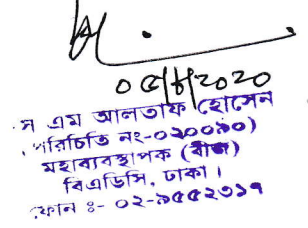 ০৫/৮/২০২০
স এম আলতাফ হোসেন
পরিচিতি নং-০২০০৯০)
মহাব্যবস্থাপক (বীজ)
বিএডিসি, ঢাকা।
ফোন ঃ- ০২-৯৫৫২৩১৭